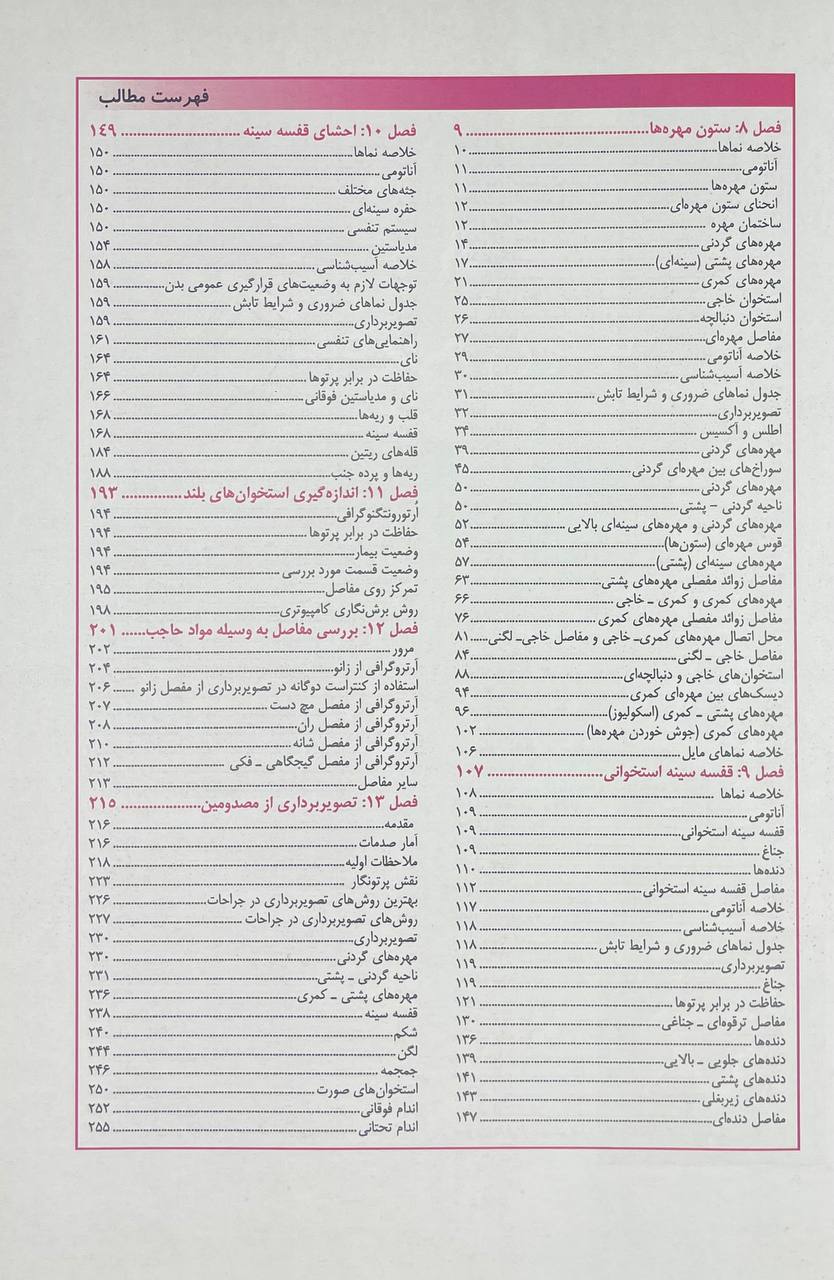 فهرست مطالب
فصل ۸: ستون مهره‌ها ........ ۹
خلاصه نماها ........ ۱۰
آناتومی ........ ۱۱
ستون مهره‌ها ........ ۱۱
انحنای ستون مهره‌ای ........ ۱۲
ساختمان مهره ........ ۱۲
مهره‌های گردنی ........ ۱۴
مهره‌های پشتی (سینه‌ای) ........ ۱۷
مهره‌های کمری ........ ۲۱
استخوان خاجی ........ ۲۵
استخوان دنبالچه ........ ۲۶
مفاصل مهره‌ای ........ ۲۷
خلاصه آناتومی ........ ۲۹
خلاصه آسیب‌شناسی ........ ۳۰
جدول نماهای ضروری و شرایط تابش ........ ۳۱
تصویربرداری ........ ۳۲
اطلس و آکسیس ........ ۳۴
مهره‌های گردنی ........ ۳۹
سوراخ‌های بین مهره‌ای گردنی ........ ۴۵
مهره‌های گردنی ........ ۵۰
ناحیه گردنی – پشتی ........ ۵۰
مهره‌های گردنی و مهره‌های سینه‌ای بالایی ........ ۵۲
قوس مهره‌ای (ستون‌ها) ........ ۵۴
مهره‌های سینه‌ای (پشتی) ........ ۵۷
مفاصل زوائد مفصلی مهره‌های پشتی ........ ۶۳
مهره‌های کمری و کمری ـ خاجی ........ ۶۶
مفاصل زوائد مفصلی مهره‌های کمری ........ ۷۶
محل اتصال مهره‌های کمری‌ـ خاجی و مفاصل خاجی‌ـ لگنی ........ ۸۱
مفاصل خاجی ـ لگنی ........ ۸۴
استخوان‌های خاجی و دنبالچه‌ای ........ ۸۸
دیسک‌های بین مهره‌ای کمری ........ ۹۴
مهره‌های پشتی ـ کمری (اسکولیوز) ........ ۹۶
مهره‌های کمری (جوش خوردن مهره‌ها) ........ ۱۰۲
خلاصه نماهای مایل ........ ۱۰۶
فصل ۹: قفسه سینه استخوانی ........ ۱۰۷
خلاصه نماها ........ ۱۰۸
آناتومی ........ ۱۰۹
قفسه سینه استخوانی ........ ۱۰۹
جناغ ........ ۱۰۹
دنده‌ها ........ ۱۱۰
مفاصل قفسه سینه استخوانی ........ ۱۱۲
خلاصه آناتومی ........ ۱۱۷
خلاصه آسیب‌شناسی ........ ۱۱۸
جدول نماهای ضروری و شرایط تابش ........ ۱۱۸
تصویربرداری ........ ۱۱۹
جناغ ........ ۱۱۹
حفاظت در برابر پرتوها ........ ۱۲۱
مفاصل ترقوه‌ای ـ جناغی ........ ۱۳۰
دنده‌ها ........ ۱۳۶
دنده‌های جلویی ـ بالایی ........ ۱۳۹
دنده‌های پشتی ........ ۱۴۱
دنده‌های زیربغلی ........ ۱۴۳
مفاصل دنده‌ای ........ ۱۴۷
فصل ۱۰: احشای قفسه سینه ........ ۱۴۹
خلاصه نماها ........ ۱۵۰
آناتومی ........ ۱۵۰
جثه‌های مختلف ........ ۱۵۰
حفره سینه‌ای ........ ۱۵۰
سیستم تنفسی ........ ۱۵۰
مدیاستین ........ ۱۵۴
خلاصه آسیب‌شناسی ........ ۱۵۸
توجهات لازم به وضعیت‌های قرارگیری عمومی بدن ........ ۱۵۹
جدول نماهای ضروری و شرایط تابش ........ ۱۵۹
تصویربرداری ........ ۱۵۹
راهنمایی‌های تنفسی ........ ۱۶۱
نای ........ ۱۶۴
حفاظت در برابر پرتوها ........ ۱۶۴
نای و مدیاستین فوقانی ........ ۱۶۶
قلب و ریه‌ها ........ ۱۶۸
قفسه سینه ........ ۱۶۸
قله‌های ریتین ........ ۱۸۴
ریه‌ها و پرده جنب ........ ۱۸۸
فصل ۱۱: اندازه‌گیری استخوان‌های بلند ........ ۱۹۳
اُرتورونتگنوگرافی ........ ۱۹۴
حفاظت در برابر پرتوها ........ ۱۹۴
وضعیت بیمار ........ ۱۹۴
وضعیت قسمت مورد بررسی ........ ۱۹۴
تمرکز روی مفاصل ........ ۱۹۵
روش برش‌نگاری کامپیوتری ........ ۱۹۸
فصل ۱۲: بررسی مفاصل به وسیله مواد حاجب ........ ۲۰۱
مرور ........ ۲۰۲
آرتروگرافی از زانو ........ ۲۰۴
استفاده از کنتراست دوگانه در تصویربرداری از مفصل زانو ........ ۲۰۶
آرتروگرافی از مفصل مچ دست ........ ۲۰۷
آرتروگرافی از مفصل ران ........ ۲۰۸
آرتروگرافی از مفصل شانه ........ ۲۱۰
آرتروگرافی از مفصل گیجگاهی ـ فکی ........ ۲۱۲
سایر مفاصل ........ ۲۱۳
فصل ۱۳: تصویربرداری از مصدومین ........ ۲۱۵
مقدمه ........ ۲۱۶
آمار صدمات ........ ۲۱۶
ملاحظات اولیه ........ ۲۱۸
نقش پرتونگار ........ ۲۲۳
بهترین روش‌های تصویربرداری در جراحات ........ ۲۲۶
روش‌های تصویربرداری در جراحات ........ ۲۲۷
تصویربرداری ........ ۲۳۰
مهره‌های گردنی ........ ۲۳۰
ناحیه گردنی ـ پشتی ........ ۲۳۱
مهره‌های پشتی ـ کمری ........ ۲۳۶
قفسه سینه ........ ۲۳۸
شکم ........ ۲۴۰
لگن ........ ۲۴۴
جمجمه ........ ۲۴۶
استخوان‌های صورت ........ ۲۵۰
اندام فوقانی ........ ۲۵۲
اندام تحتانی ........ ۲۵۵